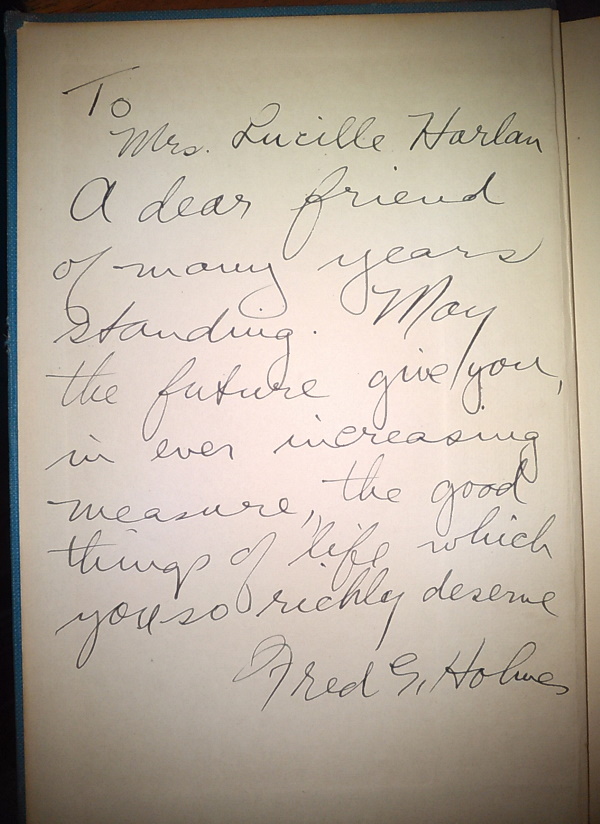 To
Mrs. Lucille Harlan
A dear friend
of many years
standing. May
the future give you,
in ever increasing
measure, the good
things of life which
you so richly deserve
Fred G. Holmes